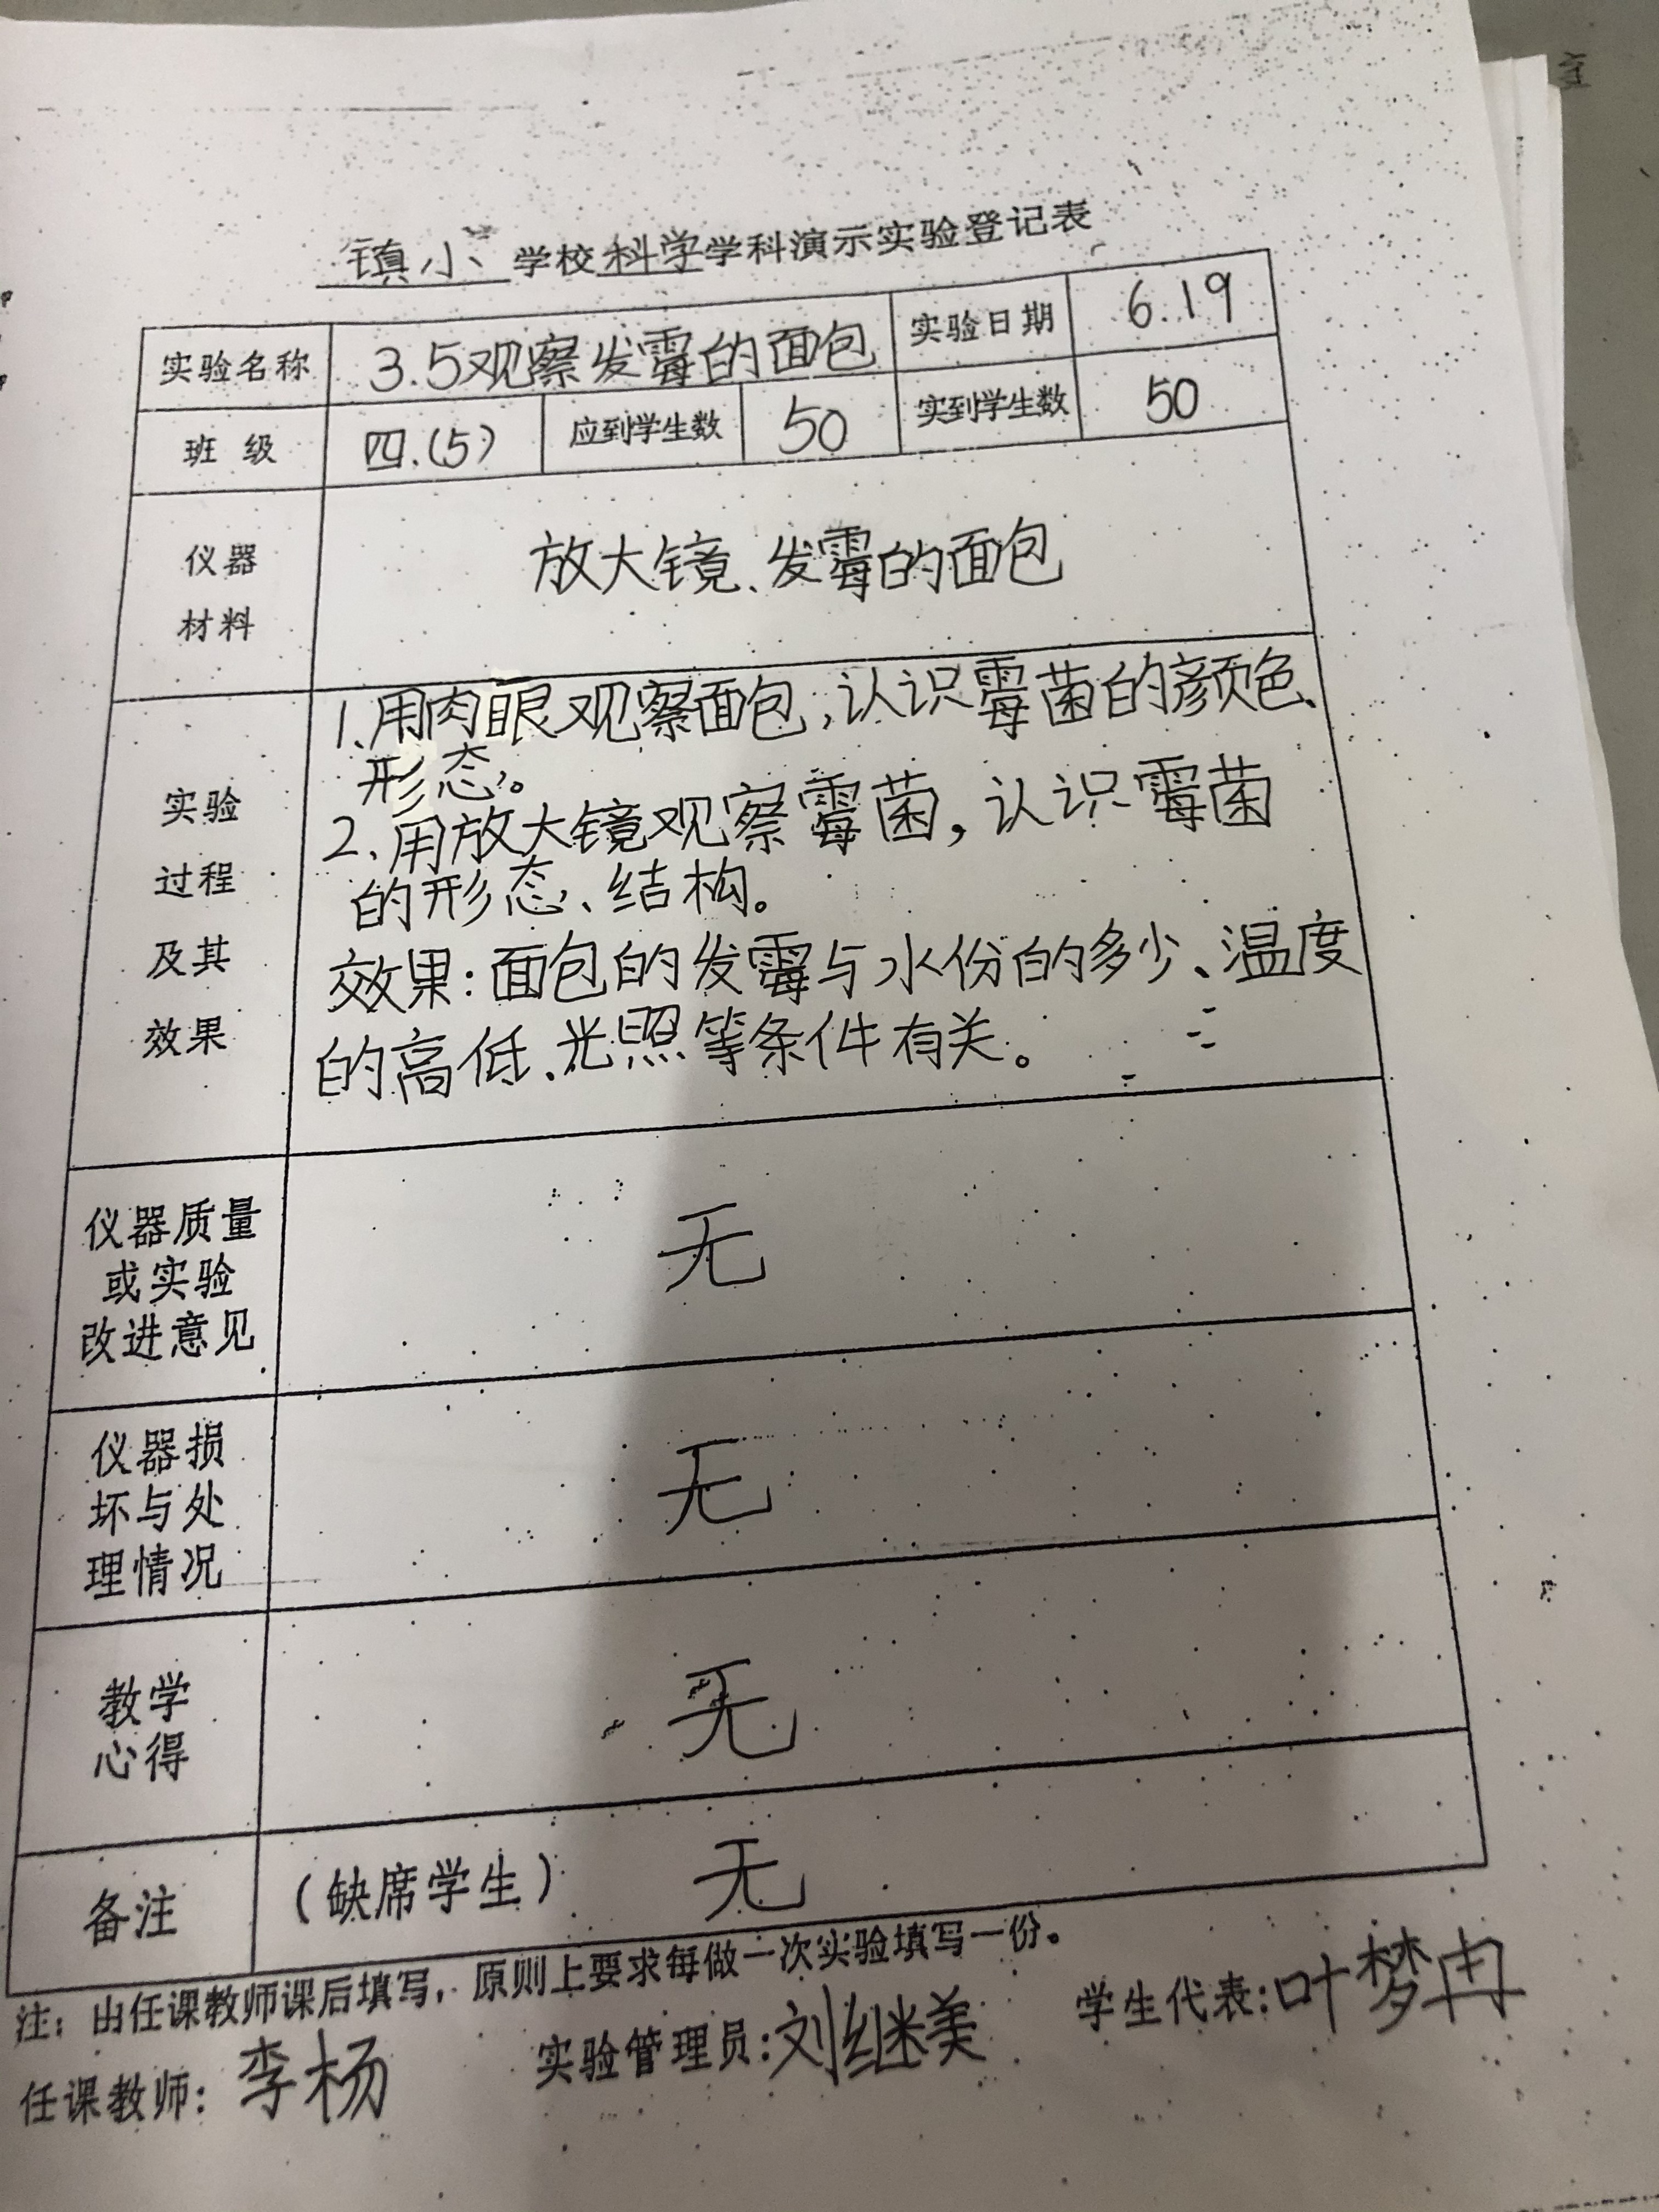 镇小学校科学学科演示实验登记表
实验名称 3.5观察发霉的面包 实验日期 6.19
班 级 四.(5) 应到学生数 50 实到学生数 50
仪器
材料
放大镜、发霉的面包
实验
过程
及其
效果
1、用肉眼观察面包,认识霉菌的颜色、
形态。
2、用放大镜观察霉菌,认识霉菌
的形态、结构。
效果:面包的发霉与水份的多少、温度
的高低、光照等条件有关。
仪器质量
或实验
改进意见
无
仪器损
坏与处
理情况
无
教学
心得
无
备注 (缺席学生) 无
注:由任课教师课后填写,原则上要求每做一次实验填写一份。
任课教师:李杨 实验管理员:刘继美 学生代表:叶梦冉